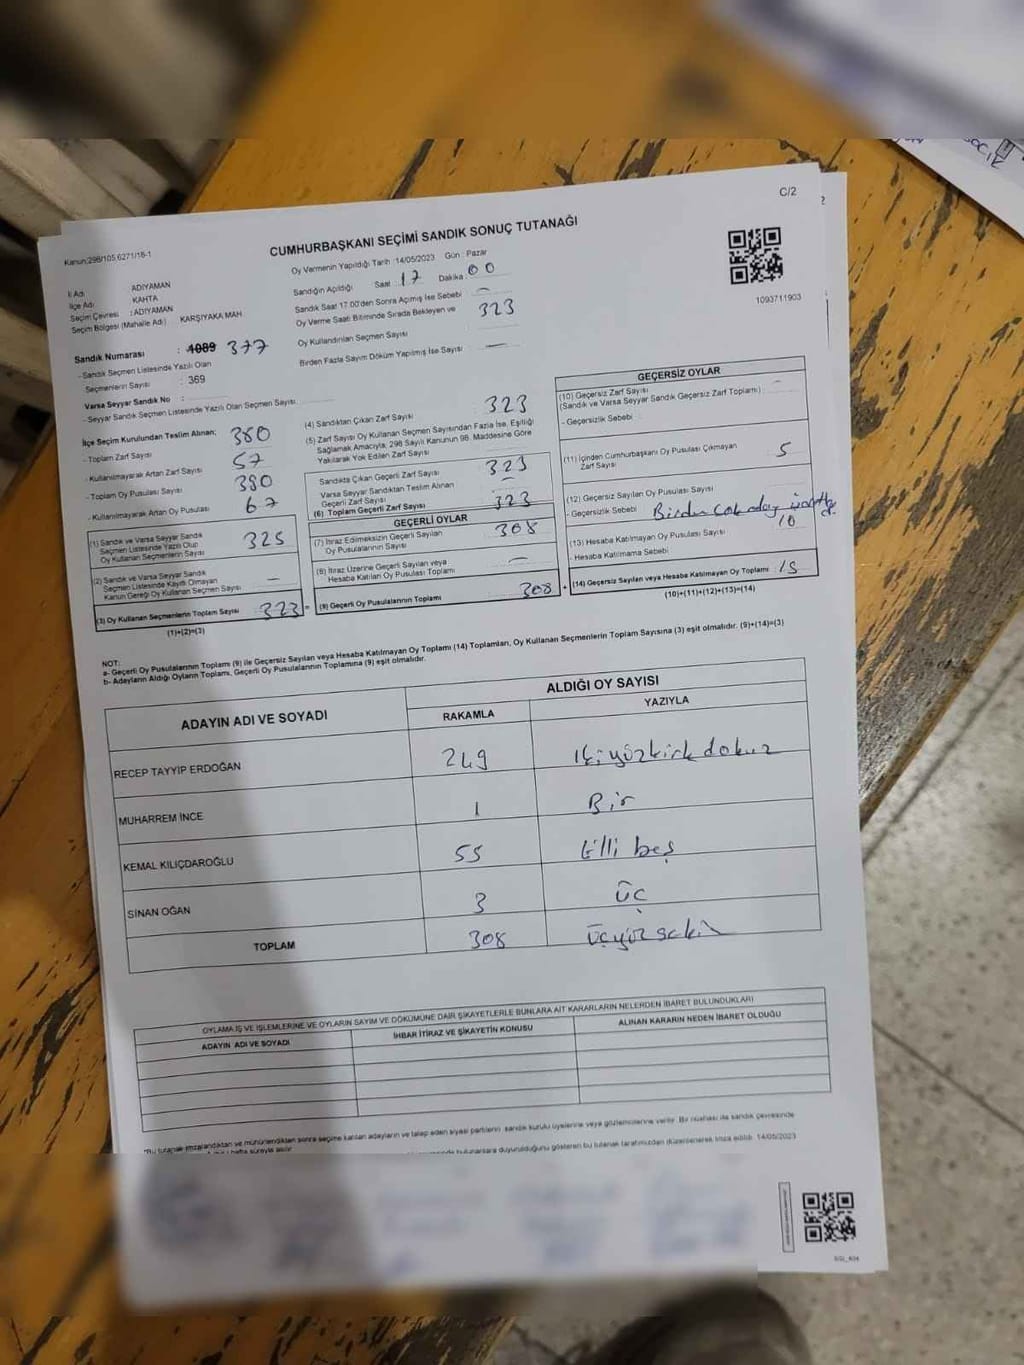 C/2
CUMHURBAŞKANI SEÇİMİ SANDIK SONUÇ TUTANAĞI
Kanun:298/105,6271/18-1
Oy Vermenin Yapıldığı Tarih :14/05/2023 Gün : Pazar
Sandığın Açıldığı Saat : 17 Dakika : 00
Sandık Saat 17.00'den Sonra Açımış İse Sebebi —
Oy Verme Saati Bitiminde Sırada Bekleyen ve
Oy Kullandırılan Seçmen Sayısı 323
Birden Fazla Sayım Döküm Yapılmış İse Sayısı —
1093711903
İl Adı ADIYAMAN
İlçe Adı KAHTA
Seçim Çevresi : ADIYAMAN
Seçim Bölgesi (Mahalle Adı) KARŞIYAKA MAH
Sandık Numarası : 1089 377
- Sandık Seçmen Listesinde Yazılı Olan
Seçmenlerin Sayısı : 369
Varsa Seyyar Sandık No :
- Seyyar Sandık Seçmen Listesinde Yazılı Olan Seçmen Sayısı
İlçe Seçim Kurulundan Teslim Alınan;
- Toplam Zarf Sayısı 380
- Kullanılmayarak Artan Zarf Sayısı 57
- Toplam Oy Pusulası Sayısı 380
- Kullanılmayarak Artan Oy Pusulası 67
(1) Sandık ve Varsa Seyyar Sandık
Seçmen Listesinde Yazılı Olup
Oy Kullanan Seçmenlerin Sayısı 325
(2) Sandık ve Varsa Seyyar Sandık
Seçmen Listesinde Kayıtlı Olmayan
Kanun Gereği Oy Kullanan Seçmen Sayısı —
(3) Oy Kullanan Seçmenlerin Toplam Sayısı 323 =
(1)+(2)=(3)
(4) Sandıktan Çıkan Zarf Sayısı 323
(5) Zarf Sayısı Oy Kullanan Seçmen Sayısından Fazla İse, Eşitliği
Sağlamak Amacıyla, 298 Sayılı Kanunun 98. Maddesine Göre
Yakılarak Yok Edilen Zarf Sayısı
Sandıkta Çıkan Geçerli Zarf Sayısı 323
Varsa Seyyar Sandıktan Teslim Alınan
Geçerli Zarf Sayısı —
(6) Toplam Geçerli Zarf Sayısı 323
GEÇERLİ OYLAR
(7) İtiraz Edilmeksizin Geçerli Sayılan
Oy Pusulalarının Sayısı 308
(8) İtiraz Üzerine Geçerli Sayılan veya
Hesaba Katılan Oy Pusulası Toplamı —
(9) Geçerli Oy Pusulalarının Toplamı 308 +
GEÇERSİZ OYLAR
(10) Geçersiz Zarf Sayısı
(Sandık ve Varsa Seyyar Sandık Geçersiz Zarf Toplamı) —
- Geçersizlik Sebebi
(11) İçinden Cumhurbaşkanı Oy Pusulası Çıkmayan
Zarf Sayısı 5
(12) Geçersiz Sayılan Oy Pusulası Sayısı
- Geçersizlik Sebebi Birden
10
(13) Hesaba Katılmayan Oy Pusulası Sayısı
- Hesaba Katılmama Sebebi
(14) Geçersiz Sayılan veya Hesaba Katılmayan Oy Toplamı : 15
(10)+(11)+(12)+(13)=(14)
NOT:
a- Geçerli Oy Pusulalarının Toplamı (9) ile Geçersiz Sayılan veya Hesaba Katılmayan Oy Toplamı (14) Toplamları, Oy Kullanan Seçmenlerin Toplam Sayısına (3) eşit olmalıdır. (9)+(14)=(3)
b- Adayların Aldığı Oyların Toplamı, Geçerli Oy Pusulalarının Toplamına (9) eşit olmalıdır.
ADAYIN ADI VE SOYADI
ALDIĞI OY SAYISI
RAKAMLA YAZIYLA
RECEP TAYYİP ERDOĞAN 249 İkiyüzkırk dokuz
MUHARREM İNCE 1 Bir
KEMAL KILIÇDAROĞLU 55 Elli beş
SİNAN OĞAN 3 üç
TOPLAM 308 üçyüz sekiz
OYLAMA İŞ VE İŞLEMLERİNE VE OYLARIN SAYIM VE DÖKÜMÜNE DAİR ŞİKAYETLERLE BUNLARA AİT KARARLARIN NELERDEN İBARET BULUNDUKLARI
ADAYIN ADI VE SOYADI İHBAR İTİRAZ VE ŞİKAYETİN KONUSU ALINAN KARARIN NEDEN İBARET OLDUĞU
*Bu tutanak imzalandıktan ve mühürlendikten sonra seçime katılan adayların ve talep eden siyasi partilerin sandık kurulu üyelerine veya gözlemcilerine verilir. Bir nüshası da sandık çevresinde
bulunanlara duyurulduğunu gösteren bu tutanak tarafımızdan düzenlenerek imza edildi. 14/05/2023